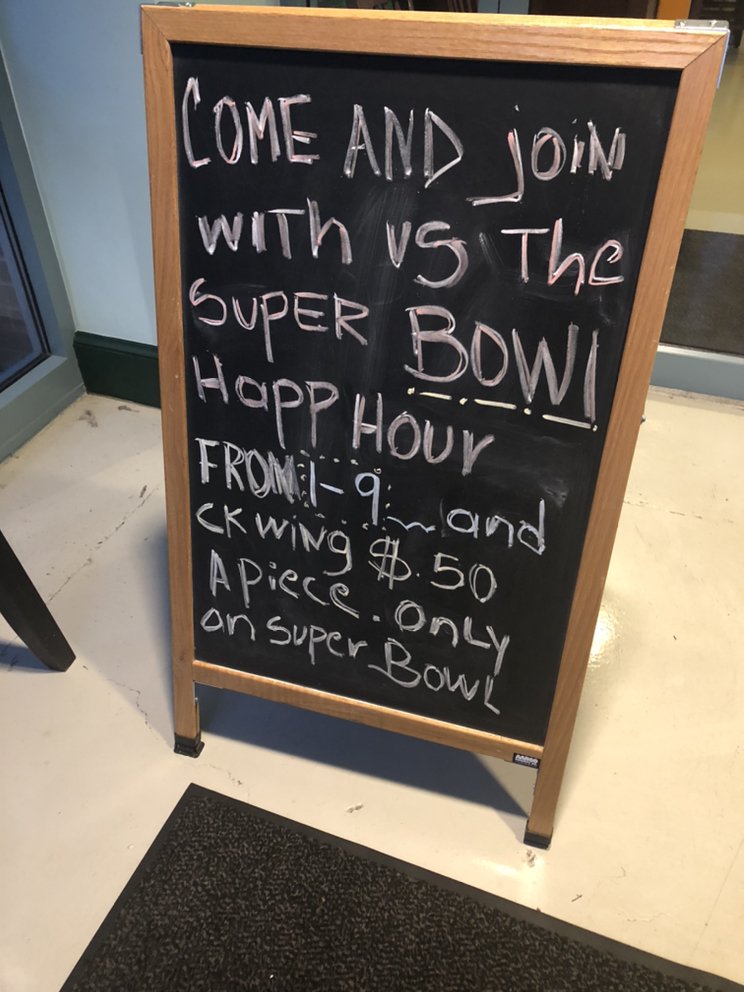 COME AND JOIN
WITH US The
SUPER BOWl
HAPP HOUR
FROM 1-9 and
CK WING $.50
A Piece. ONLY
on SUPER BOWL